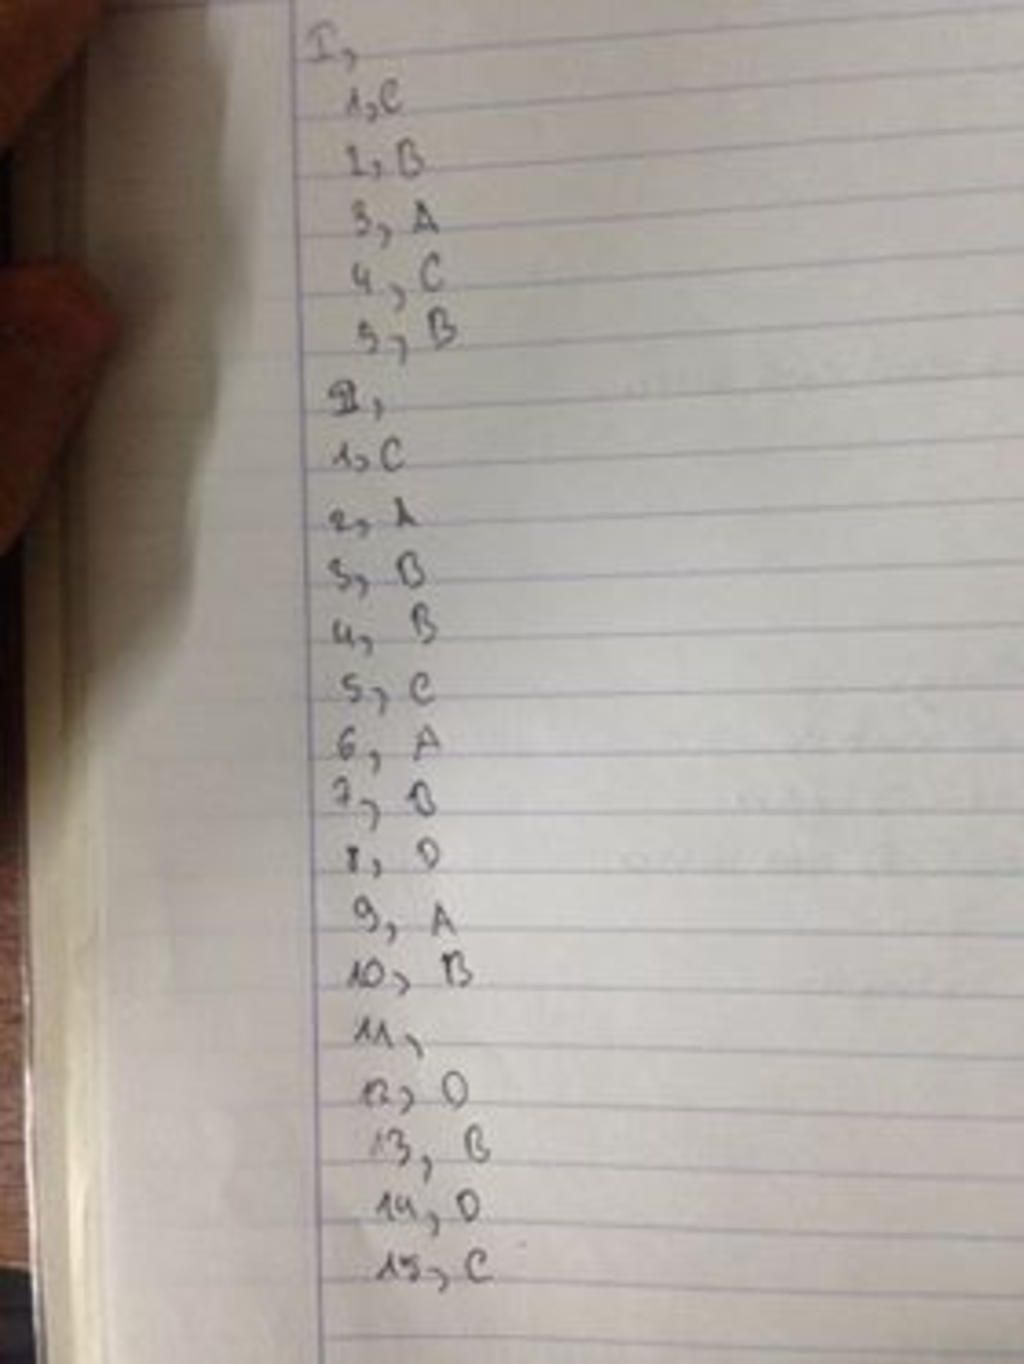 I,
1, C
2, B
3, A
4, C
5, B
II,
1, C
2, A
3, B
4, B
5, C
6, A
7, B
8, D
9, A
10, B
11,
12, D
13, B
14, D
15, C